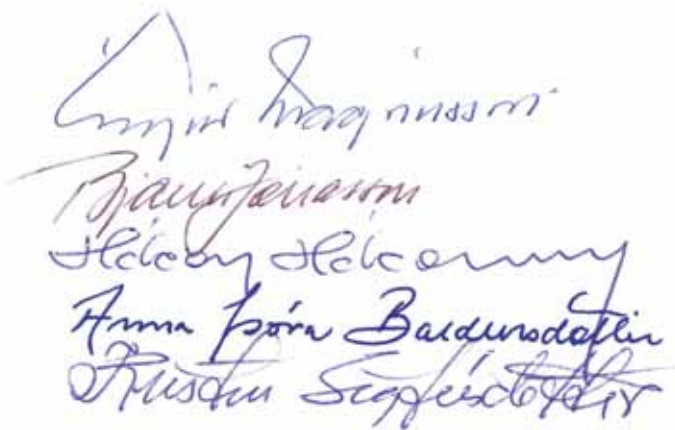 Magnússon
Bjarni Jónasson
Hákon Hákonarson
Anna Þóra Baldursdóttir
Kristín Sigfúsdóttir